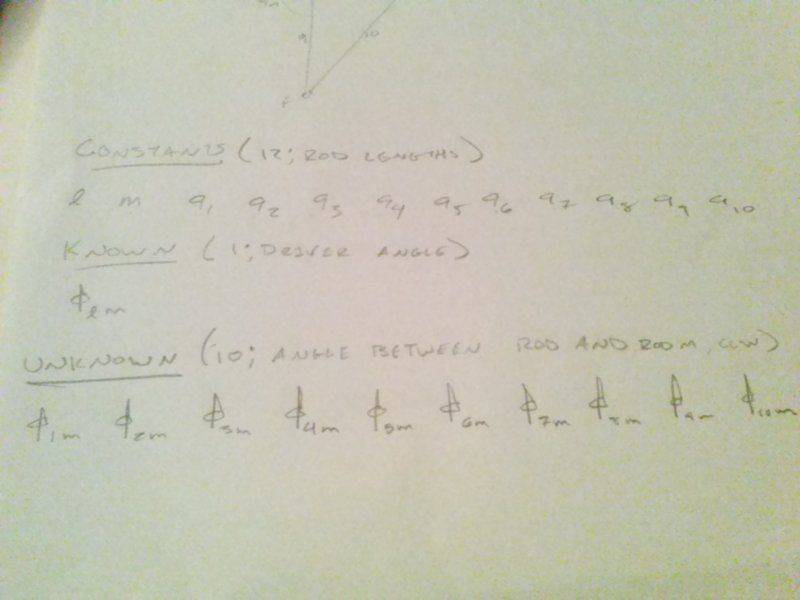 9
10
F
CONSTANTS (12; ROD LENGTHS)
l m a1 a2 a3 a4 a5 a6 a7 a8 a9 a10
KNOWN (1; DRIVER ANGLE)
ϕlm
UNKNOWN (10; ANGLE BETWEEN ROD AND ROD M, CCW)
ϕ1m ϕ2m ϕ3m ϕ4m ϕ5m ϕ6m ϕ7m ϕ8m ϕ9m ϕ10m